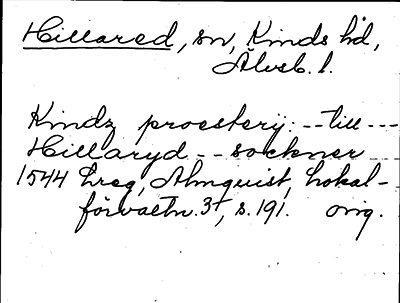 Hillared, sn, Kinds hd,
Älvsb. l.
Kindz proesterij: -- till ---
Hillaryd -- sockner
1544 hreg, Almquist, Lokal-
förvaltn. 3t, s. 191. orig.